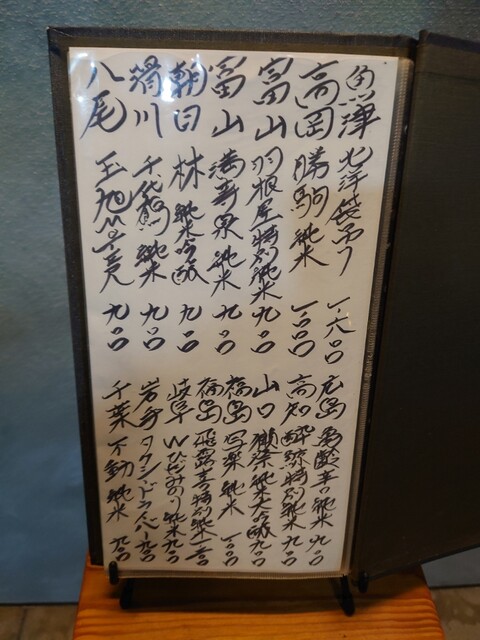 魚津 北洋袋吊り 一八〇〇
高岡 勝駒 純米 一〇〇〇
富山 羽根屋特別純米 九〇〇
富山 満寿泉 純米 九〇〇
朝日 林 純米吟醸 九〇〇
滑川 千代鶴 純米 九〇〇
八尾 玉旭 九〇〇
広島 亀齢辛口純米 九〇〇
高知 酔鯨特別純米 九〇〇
山口 獺祭純米大吟醸 九〇〇
福島 写楽 純米 一〇〇〇
福島 飛露喜特別純米
岐阜 Wひだみのり純米 九〇〇
岩手 タクシードライバー 九〇〇
千葉 不動 純米 九〇〇